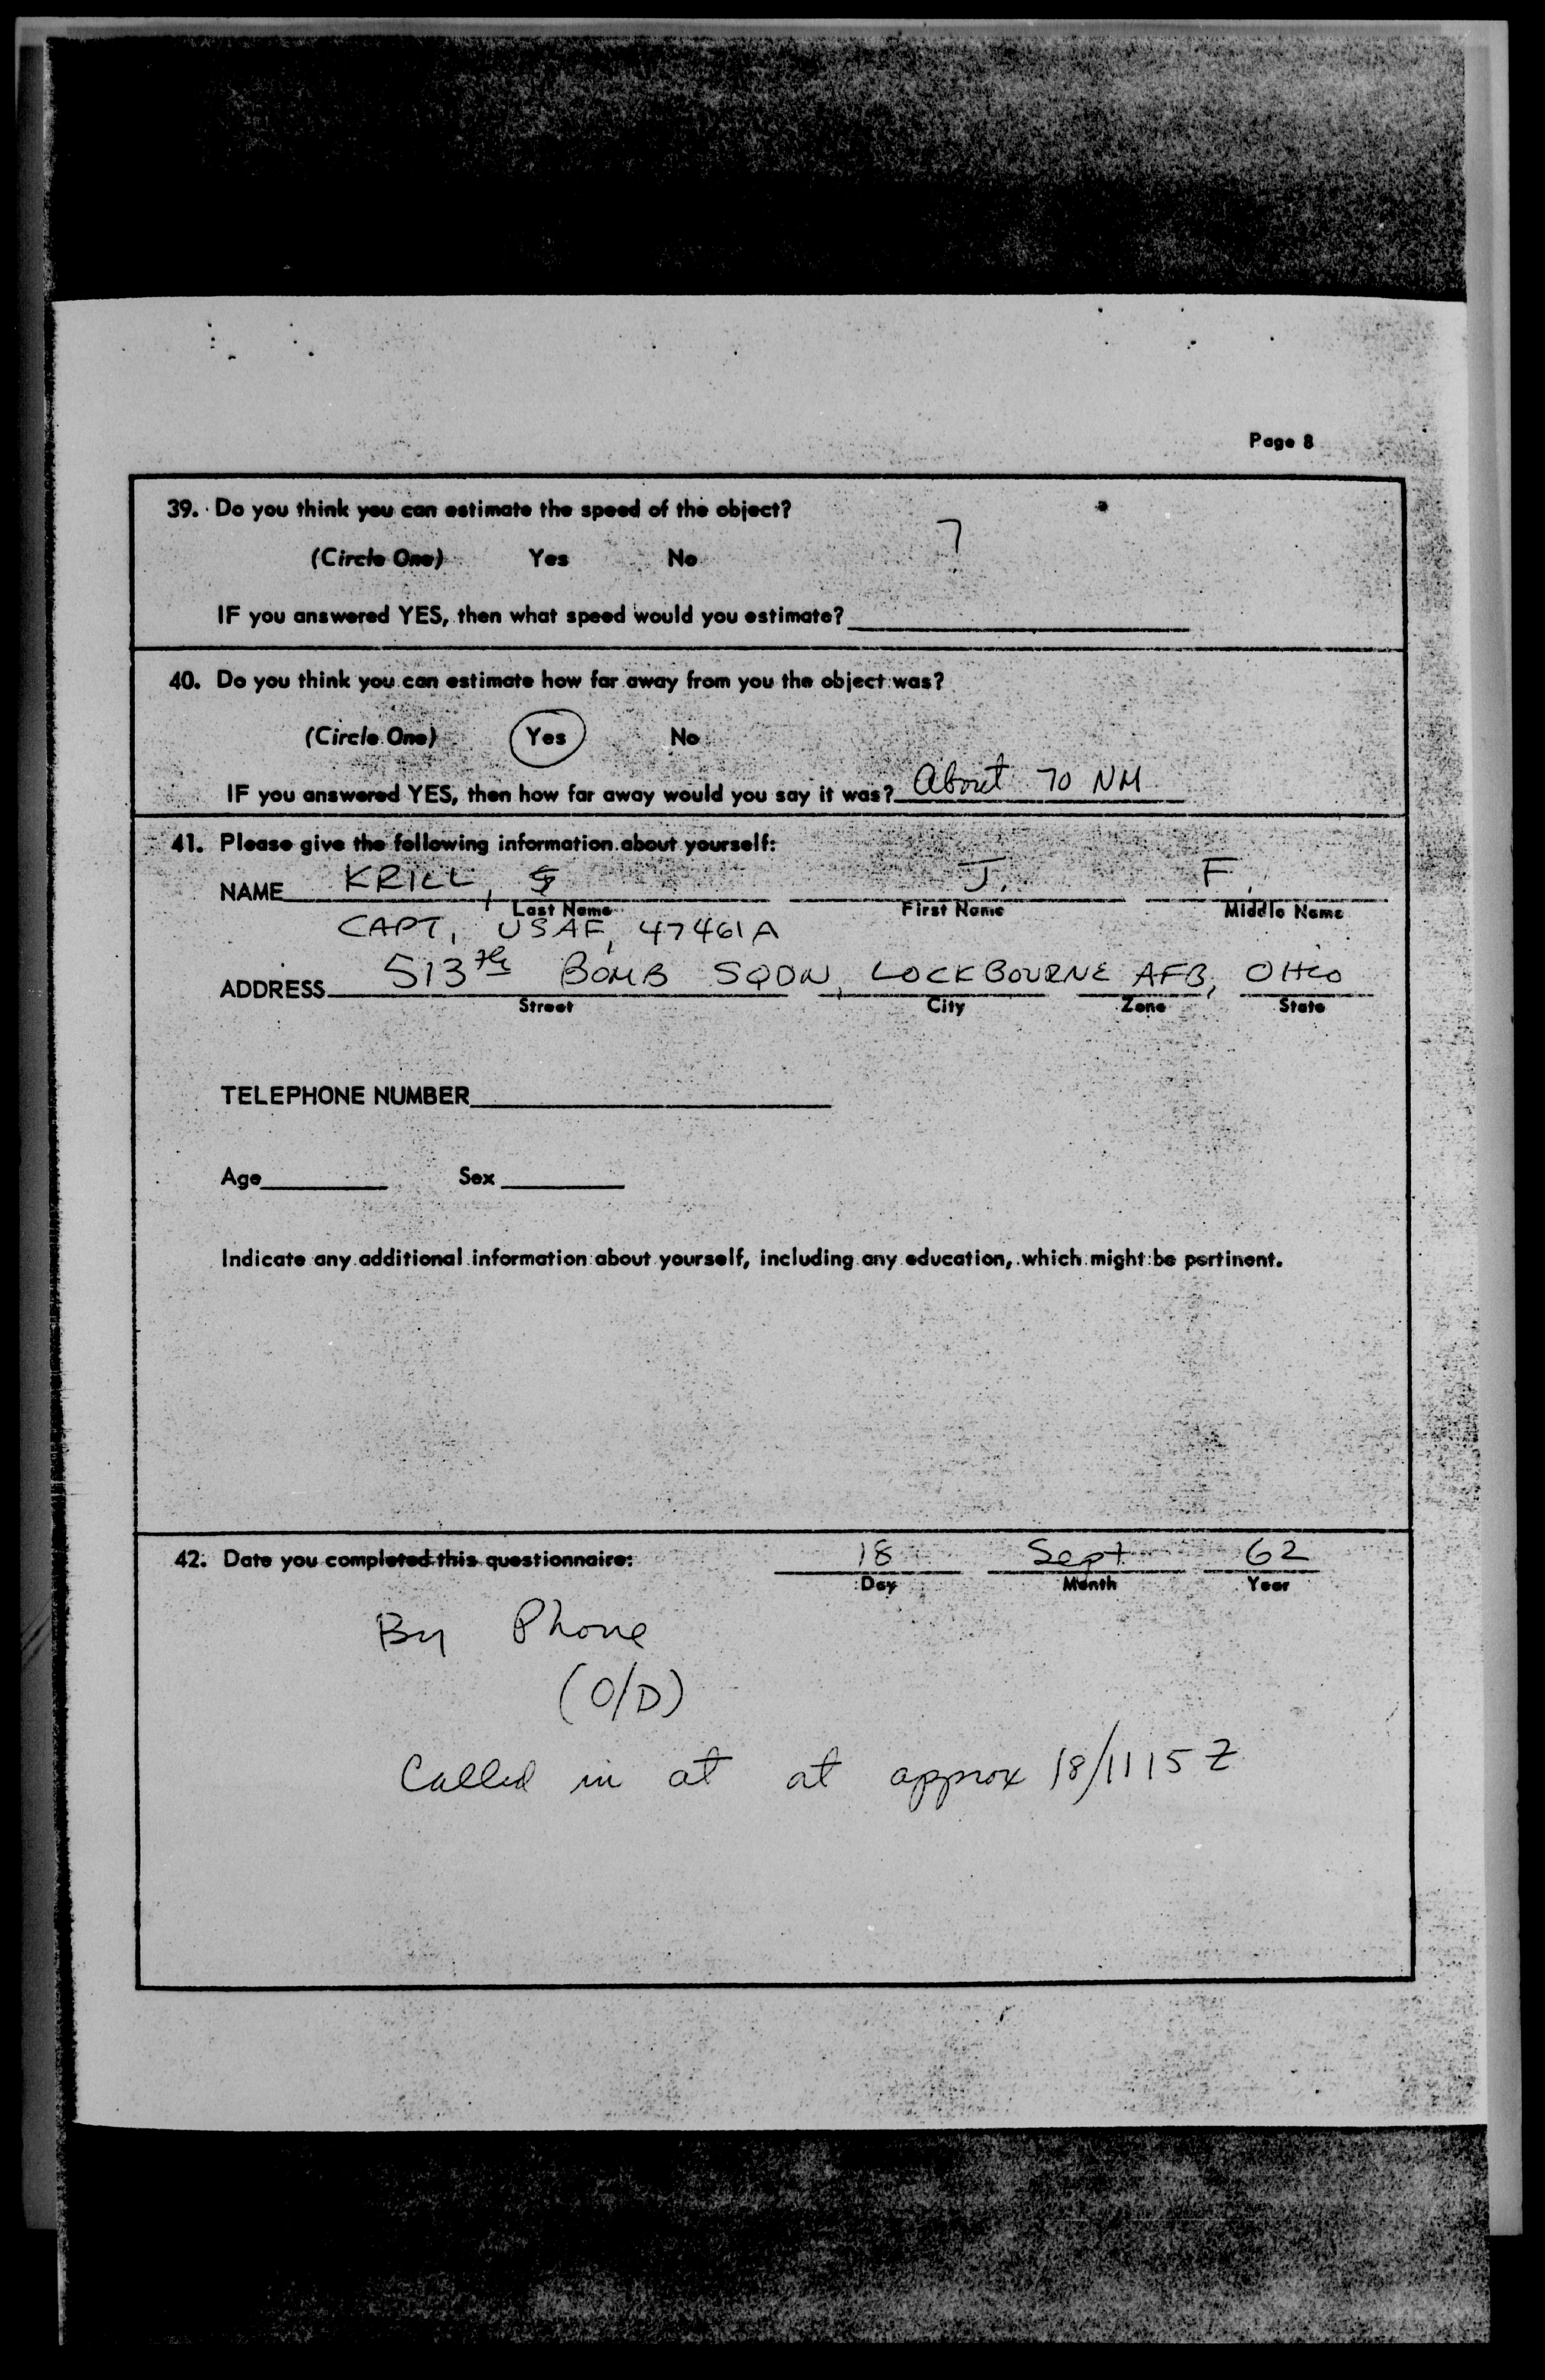 Page 8
39. Do you think you can estimate the speed of the object?
(Circle One) Yes No ?
IF you answered YES, then what speed would you estimate?
40. Do you think you can estimate how far away from you the object was?
(Circle One) Yes No
IF you answered YES, then how far away would you say it was? About 70 NM
41. Please give the following information about yourself:
NAME KRILL, J. F.
Last Name First Name Middle Name
CAPT, USAF, 47461A
ADDRESS 513th BOMB SQDN, LOCKBOURNE AFB, OHIO
Street City Zone State
TELEPHONE NUMBER
Age Sex
Indicate any additional information about yourself, including any education, which might be pertinent.
42. Date you completed this questionnaire: 18 Sept 62
Day Month Year
By Phone
(O/D)
Called in at at approx 18/1115 Z